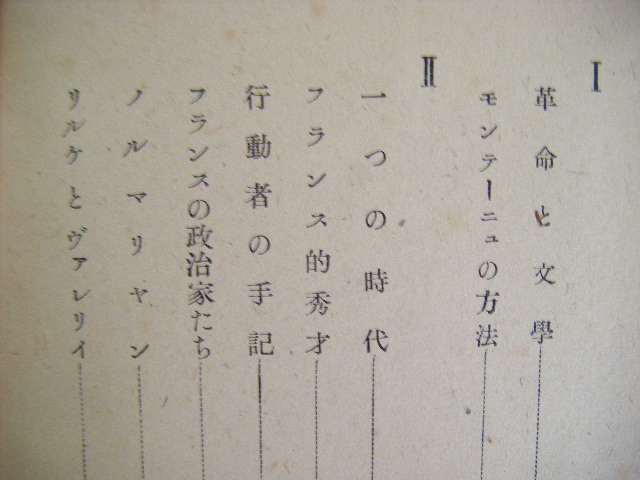 I
革命と文學
モンテーニュの方法
II
一つの時代
フランス的秀才
行動者の手記
フランスの政治家たち
ノルマリヤン
リルケとヴァレリイ